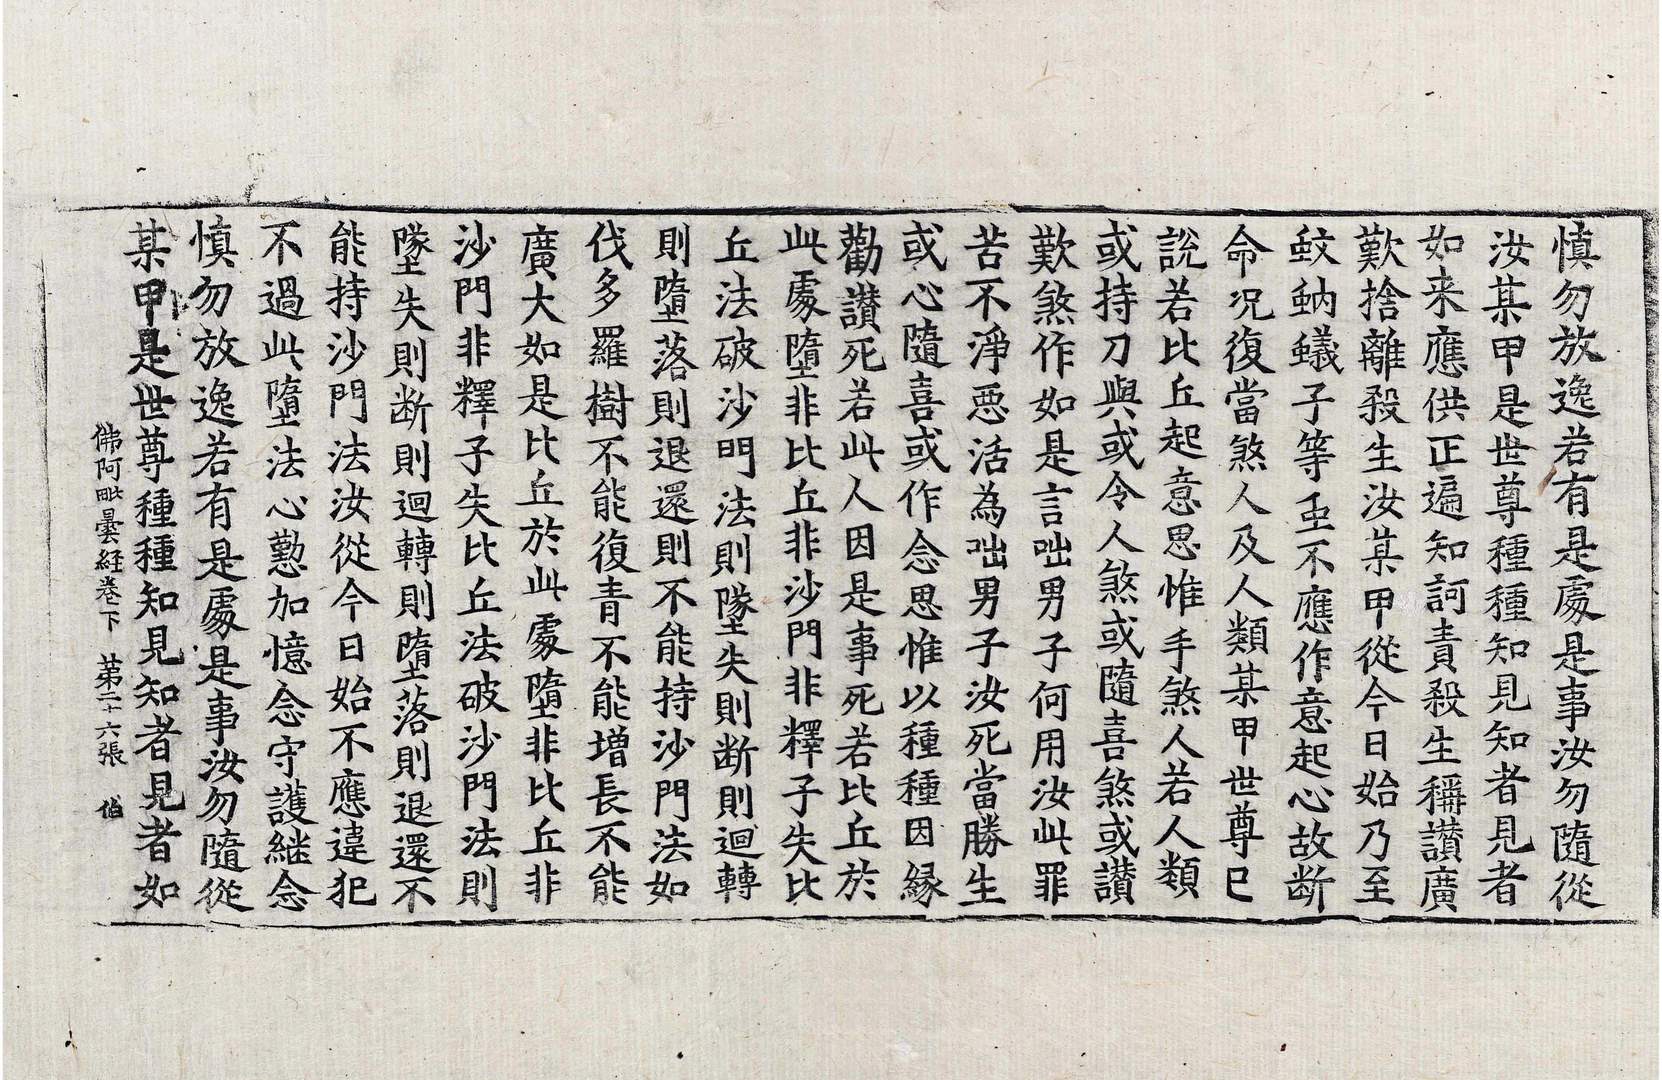 慎勿放逸若有是處是事汝勿隨從
汝某甲是世尊種種知見知者見者
如来應供正遍知訶責殺生稱讃廣
歎捨離殺生汝某甲從今日始乃至
蚊蚋蟻子等至不應作意起心故断
命况復當煞人及人類某甲世尊已
説若比丘起意思惟手煞人若人類
或持刀與或令人煞或隨喜煞或讃
歎煞作如是言咄男子何用汝此罪
苦不淨惡活為咄男子汝死當勝生
或心隨喜或作念思惟以種種因縁
勸讃死若此人因是事死若比丘於
此處墮非比丘非沙門非釋子失比
丘法破沙門法則墜失則断則迴轉
則墮落則退還則不能持沙門法如
伐多羅樹不能復青不能增長不能
廣大如是比丘於此處墮非比丘非
沙門非釋子失比丘法破沙門法則
墜失則断則迴轉則墮落則退還不
能持沙門法汝從今日始不應違犯
不過此墮法心懃加憶念守護継念
慎勿放逸若有是處是事汝勿隨從
某甲是世尊種種知見知者見者如
佛阿毗曇経卷下 第二十六張